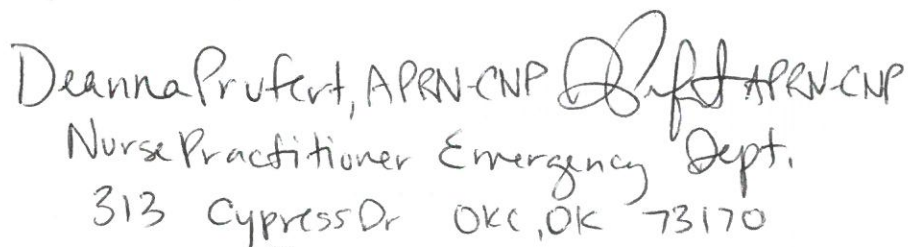 Deanna Prufert, APRN-CNP APRN-CNP
Nurse Practitioner Emergency Dept.
313 Cypress Dr OKC, OK 73170